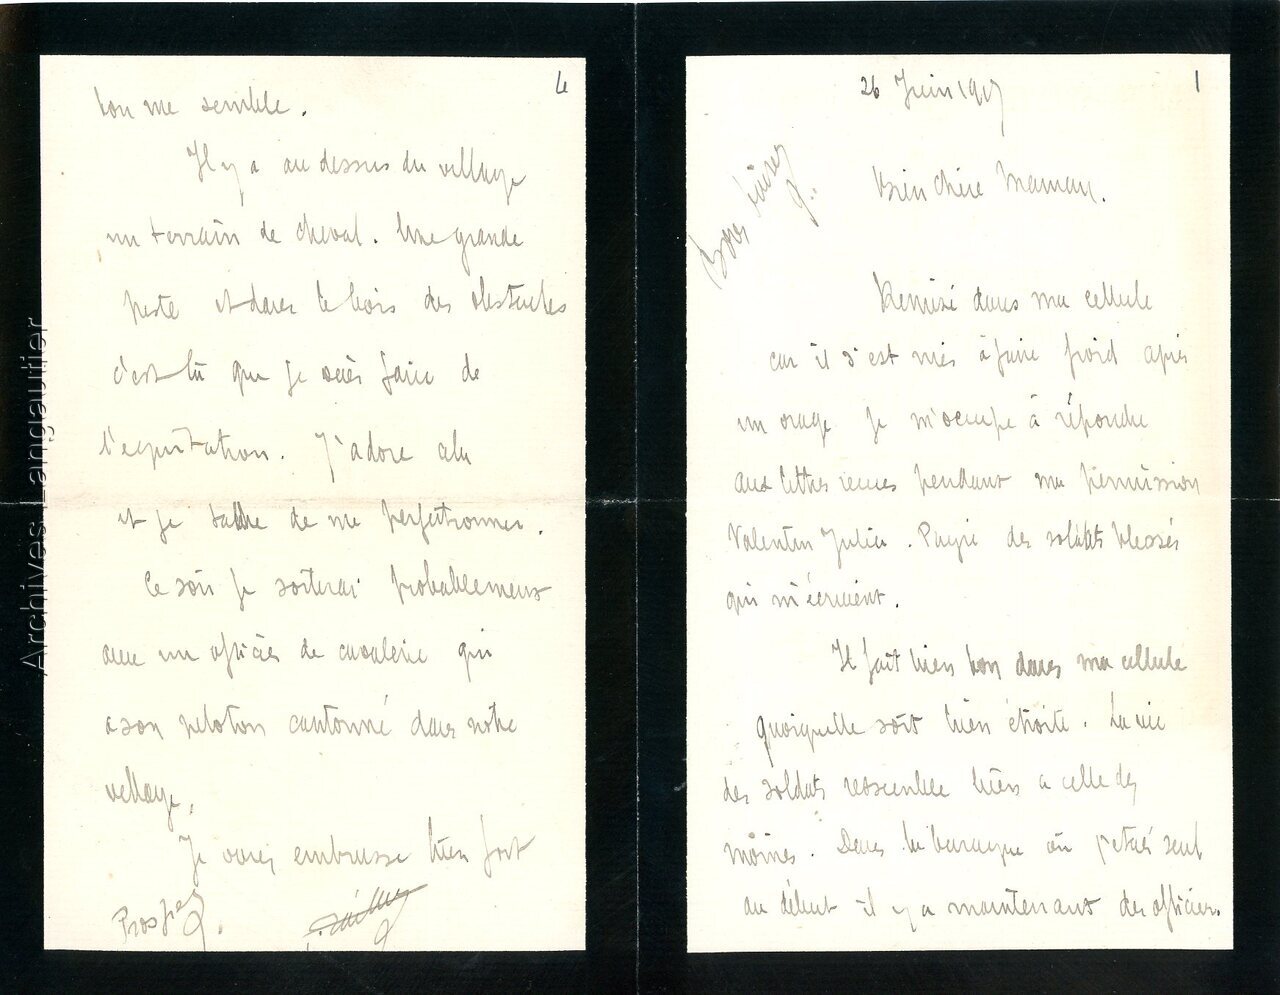 1
26 Juin 1917
Bien chère Maman.
Remisé dans ma cellule
car il s'est mis à faire froid après
un orage je m'occupe à répondre
aux lettres reçues pendant ma permission
Valentin Julien. Puyré des soldats blessés
qui m'écrivent.
Il fait bien bon dans ma cellule
quoiqu'elle soit bien étroite. La vie
des soldats ressemble bien a celle des
moines. Dans la baraque où j'étais seul
au début il y a maintenant des officiers.
4
bon me semble.
Il y a au dessus du village
un terrain de cheval. Une grande
piste et dans le bois des obstacles
c'est là que je vais faire de
l'equitation. J'adore cela
et je tâche de me perfectionner.
Ce soir je sortirai probablement
avec un officier de cavalerie qui
a son peloton cantonné dans notre
village.
Je vous embrasse bien fort
Prosper.
Archives Langautier